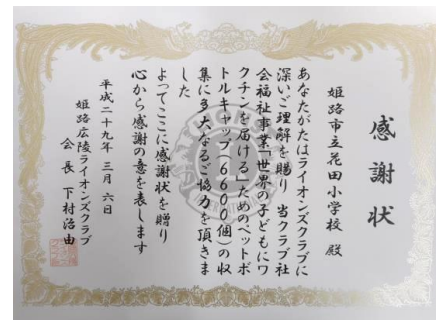 感謝状
姫路市立花田小学校 殿
あなたがたはライオンズクラブに
深いご理解を賜り 当クラブ社
会福祉事業「世界の子どもにワ
クチンを届ける」ためのペットボ
トルキャップ(6660個)の収
集に多大なるご協力を頂きま
した
よってここに感謝状を贈り
心から感謝の意を表します
平成二十九年 三月 六日
姫路広陵ライオンズクラブ
会長 下村治由